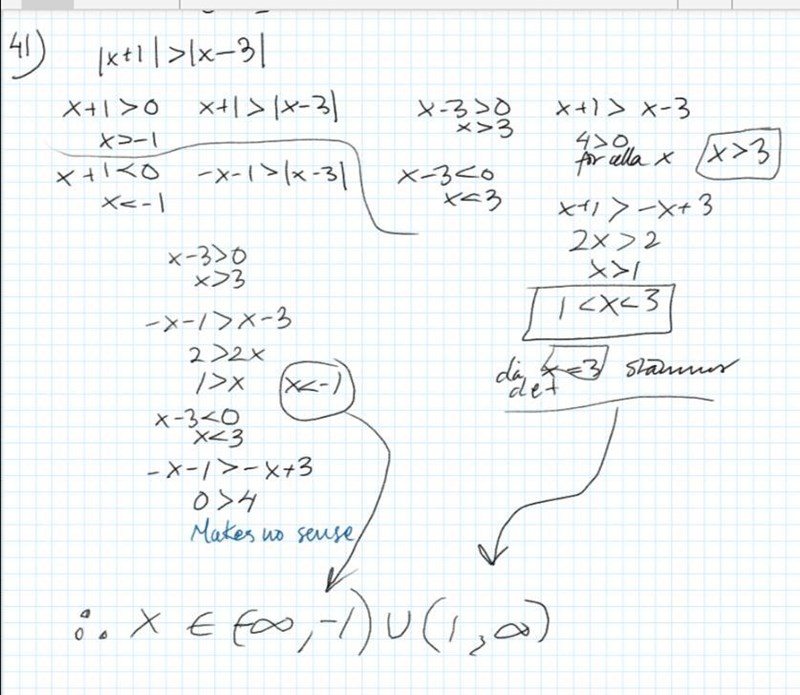 41)
|x+1|>|x-3|
x+1>0 x+1>|x-3|
x>-1
x+1<0 -x-1>|x-3|
x<-1
x-3>0
x>3
-x-1>x-3
2>2x
1>x x<-1
x-3<0
x<3
-x-1>-x+3
0>4
Makes no sense
x-3>0 x+1>x-3
x>3
4>0
för alla x x>3
x-3<0
x<3
x+1>-x+3
2x>2
x>1
1<x<3
då x=3 stämmer
det
∴ x ∈ (-∞,-1)∪(1,∞)